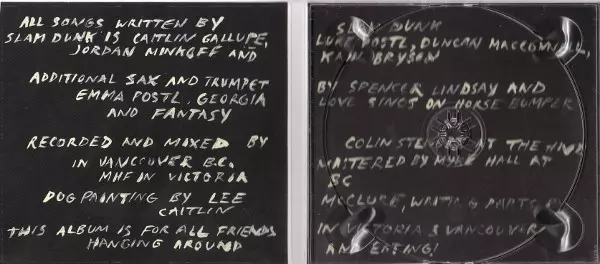 ALL SONGS WRITTEN BY
SLAM DUNK IS CAITLIN GALLUPE,
JORDAN MINKOFF AND
ADDITIONAL SAX AND TRUMPET
EMMA POSTL, GEORGIA
AND FANTASY
RECORDED AND MIXED BY
IN VANCOUVER B.C.
MHF IN VICTORIA
DOG PAINTING BY LEE
CAITLIN
THIS ALBUM IS FOR ALL FRIENDS
HANGING AROUND
SLAM DUNK
LUKE POSTL, DUNCAN MACCONNELL,
BRYSON
BY SPENCER LINDSAY AND
LOVE SINGS ON HORSE BUMPER
COLIN AT THE HIVE
MASTERED BY HALL AT
BC
MCCLURE, WRITING
IN VICTORIA & VANCOUVER
AND